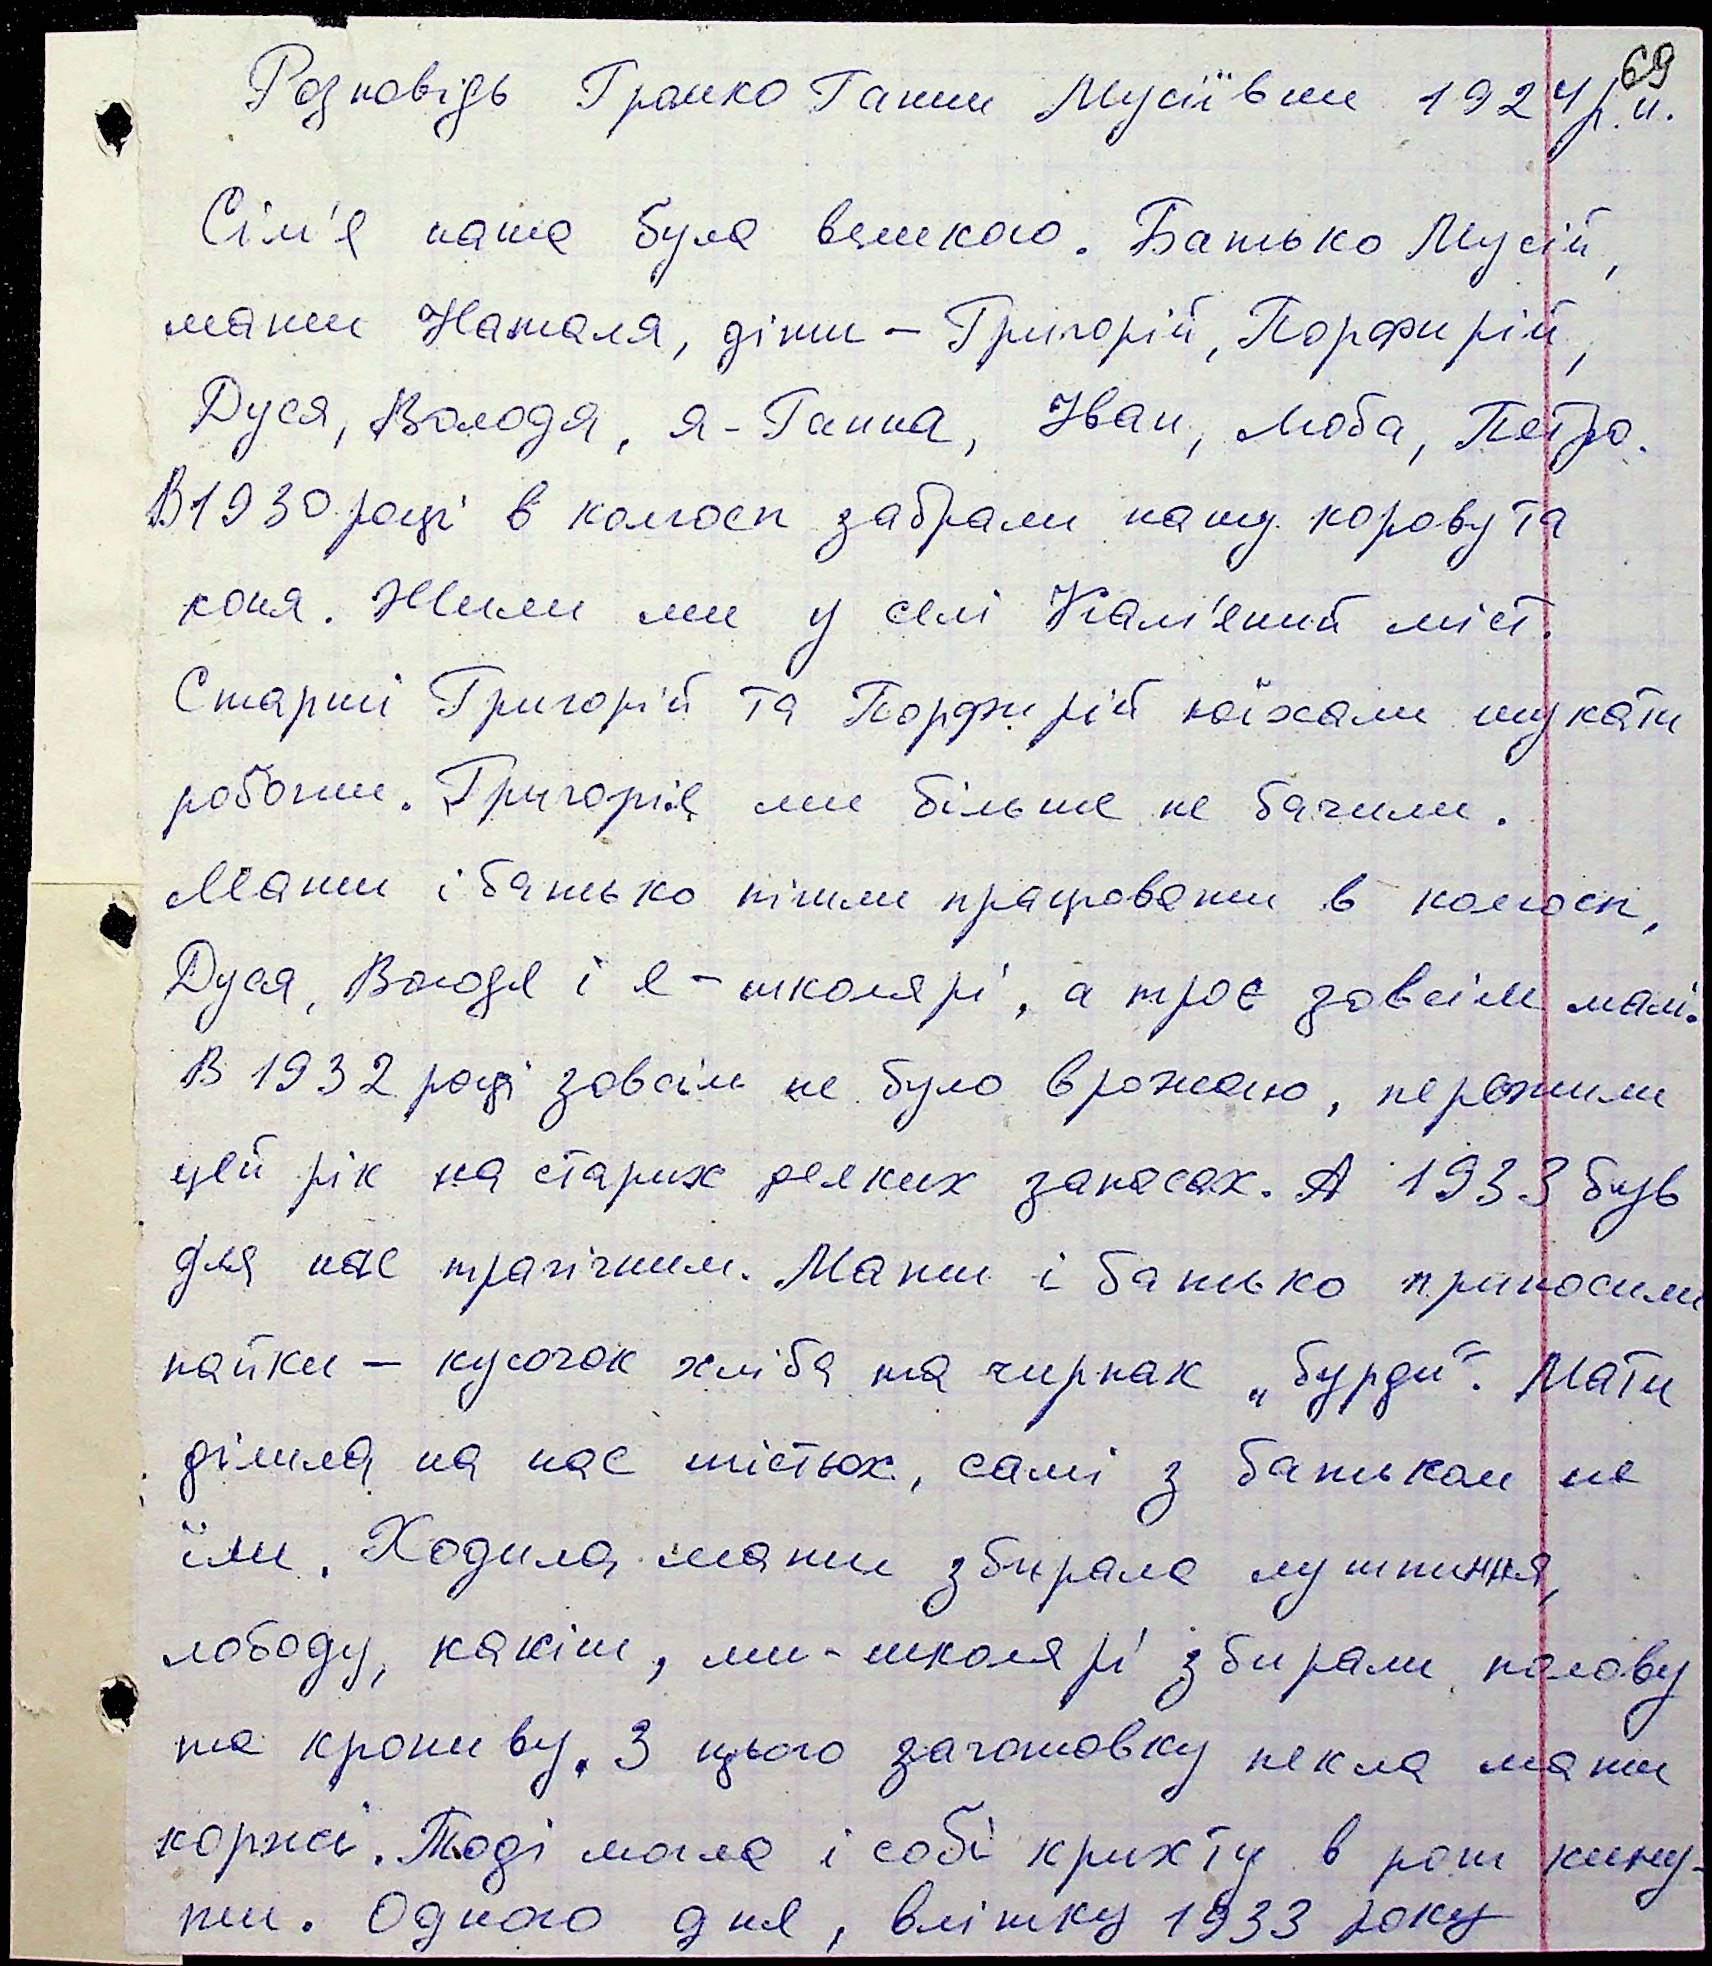 69
Розповідь Громко Ганни Мусіївни 1924 р.н.
Сім'я наша була великою. Батько Мусій,
мати Наталя, діти – Григорій, Порфирій,
Дуся, Володя, я - Ганна, Іван, Люба, Петро.
В 1930 році в колгосп забрали нашу корову та
коня. Жили ми у селі Кам'яний міст.
Старші Григорій та Порфирій поїхали шукати
роботи. Григорія ми більше не бачили.
Мати і батько пішли працювати в колгосп,
Дуся, Володя і я – школярі, а троє зовсім малі.
В 1932 році зовсім не було врожаю, пережили
цей рік на старих деяких запасах. А 1933 був
для нас трагічним. Мати і батько приносили
пайки – кусочок хліба та черпак „бурди“. Мати
ділила на нас шістьох, самі з батьком не
їли. Ходила мати збирала лушпиння,
лободу, какіш, ми - школярі збирали полову
та кропиву. З цього заготовку пекла мати
коржі. Тоді могла і собі крихту в рот кину-
ти. Одного дня, влітку 1933 року